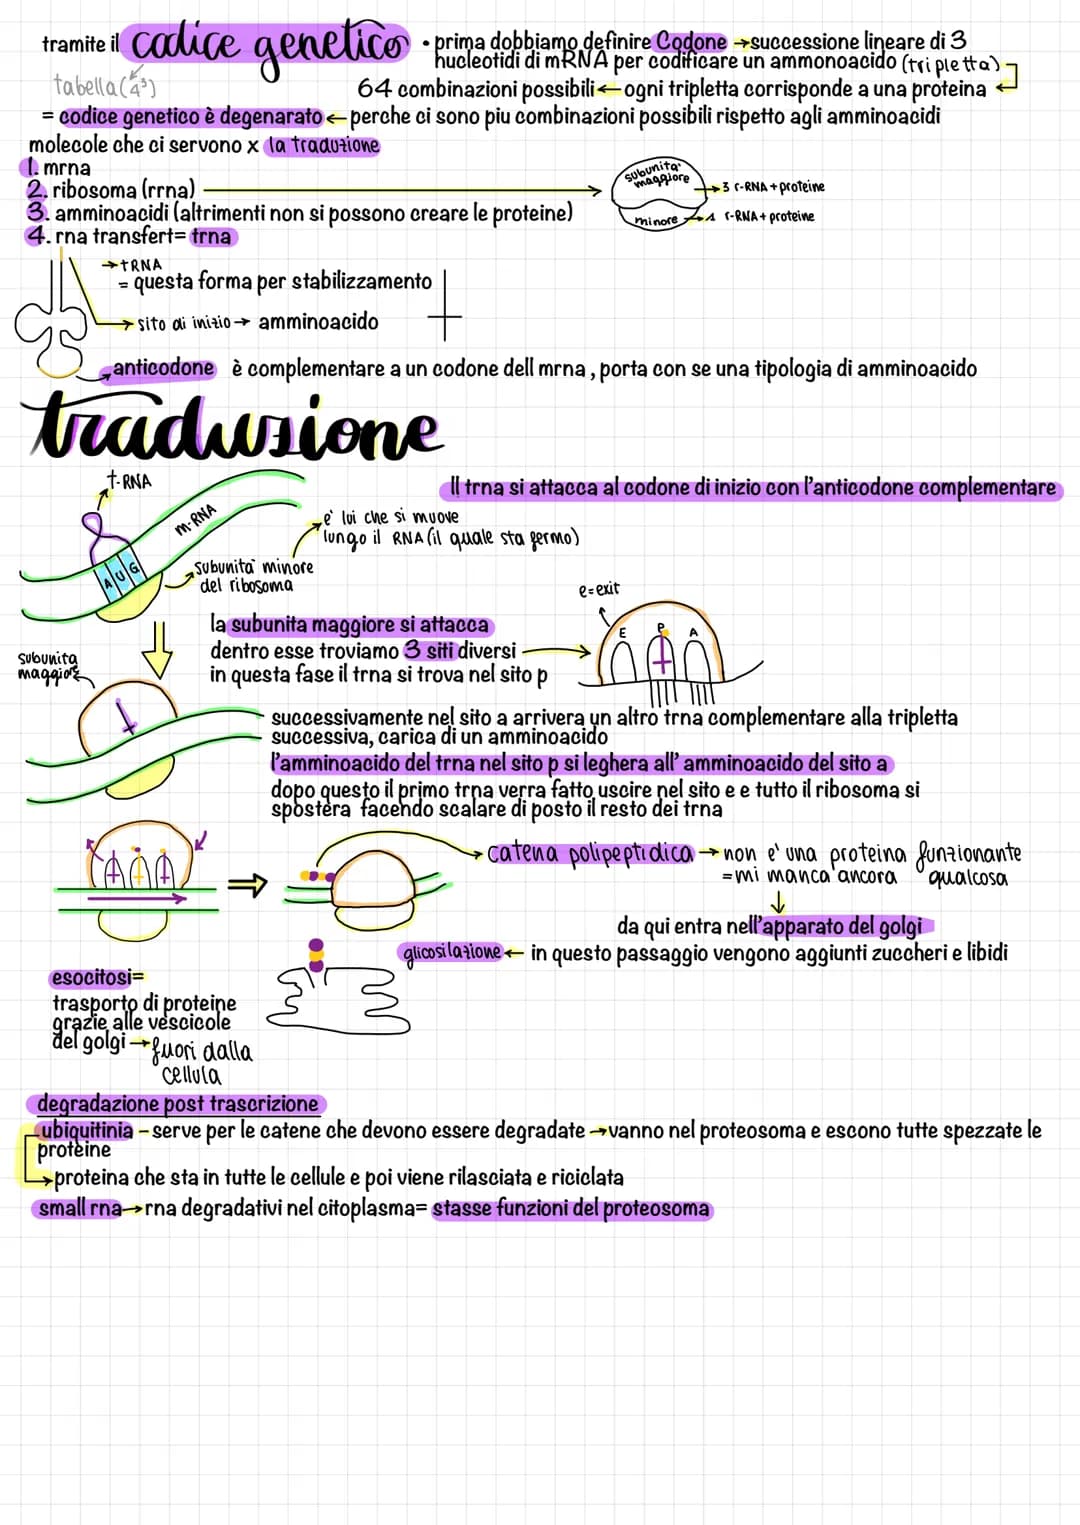 tramite il codice genetico • prima dobbiamo definire Codone → successione lineare di 3
nucleotidi di mRNA per codificare un ammonoacido (tripletta)
tabella (4³)
64 combinazioni possibili ← ogni tripletta corrisponde a una proteina
= codice genetico è degenarato ← perche ci sono piu combinazioni possibili rispetto agli amminoacidi
molecole che ci servono x la traduzione
1. mrna
2. ribosoma (rrna)
3. amminoacidi (altrimenti non si possono creare le proteine)
4. rna transfert= trna
subunita'
maggiore
→ 3 r-RNA + proteine
minore
→ 1 r-RNA + proteine
→ tRNA
= questa forma per stabilizzamento
→ sito di inizio → amminoacido
anticodone è complementare a un codone dell mrna, porta con se una tipologia di amminoacido
traduzione
t-RNA
m-RNA
Il trna si attacca al codone di inizio con l'anticodone complementare
e' lui che si muove
lungo il RNA (il quale sta fermo)
A U G
subunita' minore
del ribosoma
e=exit
la subunita maggiore si attacca
dentro esse troviamo 3 siti diversi
in questa fase il trna si trova nel sito p
E P A
subunita
maggiore
successivamente nel sito a arrivera un altro trna complementare alla tripletta
successiva, carica di un amminoacido
l'amminoacido del trna nel sito p si leghera all' amminoacido del sito a
dopo questo il primo trna verra fatto uscire nel sito e e tutto il ribosoma si
spostera facendo scalare di posto il resto dei trna
catena polipeptidica → non e' una proteina funzionante
= mi manca ancora qualcosa
da qui entra nell'apparato del golgi
glicosilazione ← in questo passaggio vengono aggiunti zuccheri e libidi
esocitosi=
trasporto di proteine
grazie alle vescicole
del golgi → fuori dalla
cellula
degradazione post trascrizione
ubiquitinia – serve per le catene che devono essere degradate → vanno nel proteosoma e escono tutte spezzate le
proteine
→ proteina che sta in tutte le cellule e poi viene rilasciata e riciclata
small rna → rna degradativi nel citoplasma= stasse funzioni del proteosoma